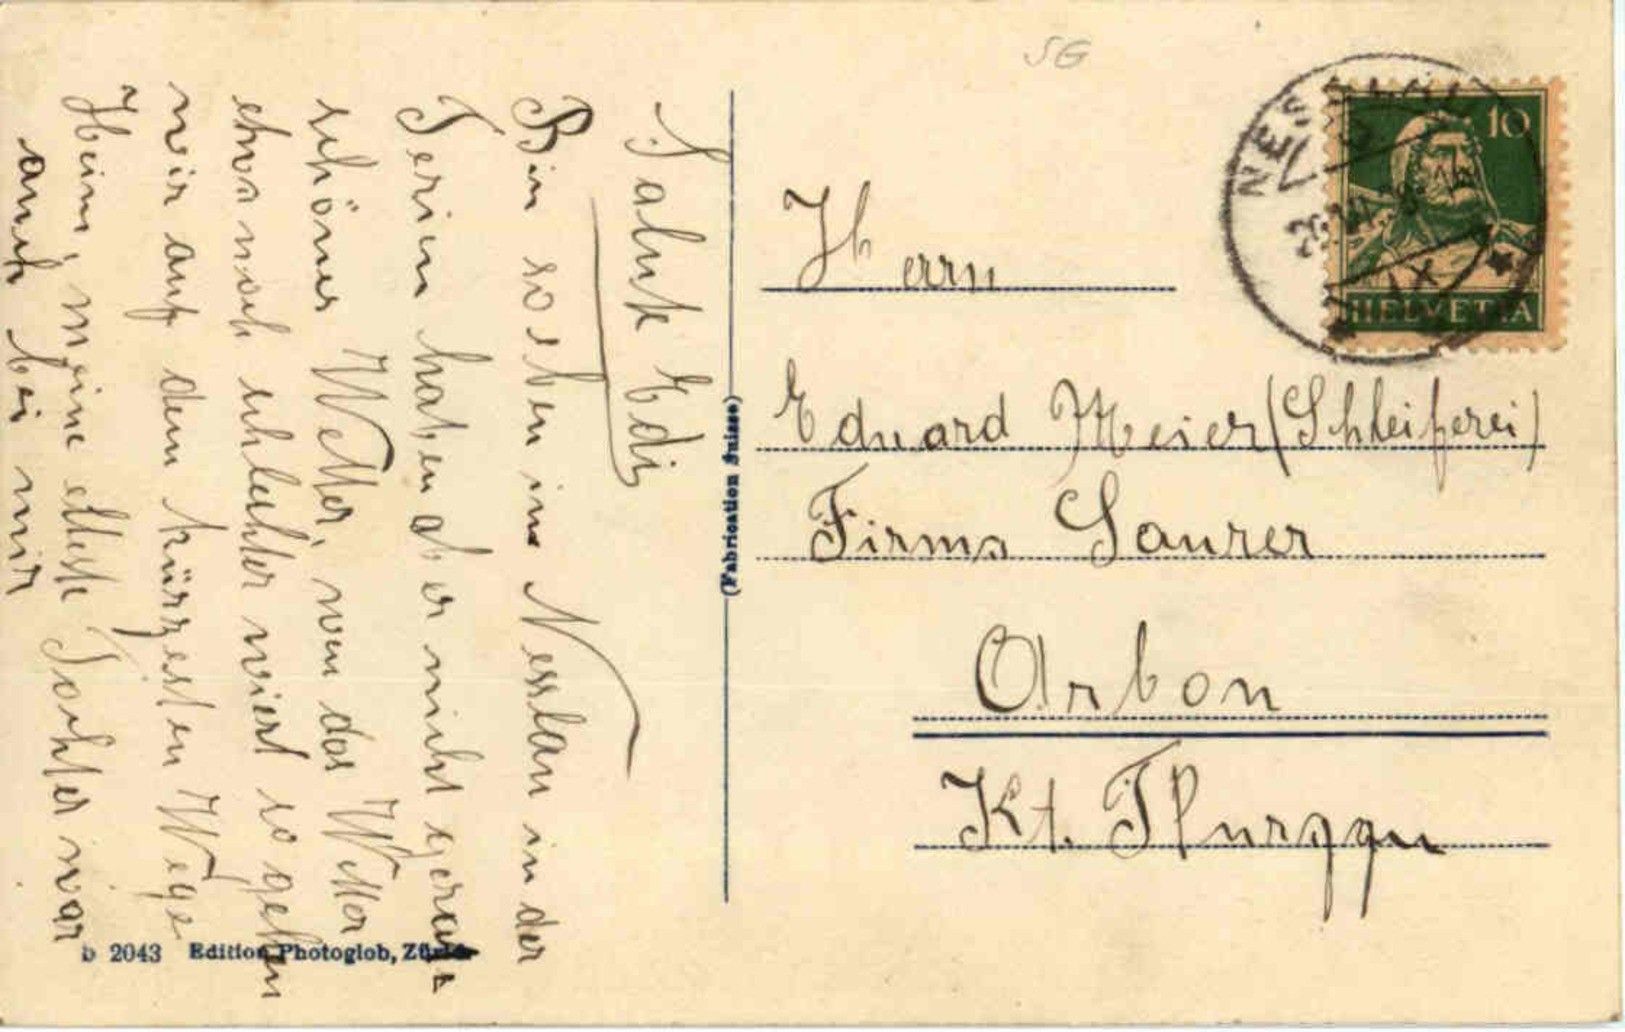 Salut Edi
Bin soeben im Nesslau in der
Ferien haben aber nicht gerade
schönes Wetter, wen das Wetter
etwas noch schlechter wiert so gehen
wir auf dem kürzesten Wege
Heim, meine elteste Tochter war
auch bei mir
SG
NESSLAU
IX
10
HELVETIA
Herrn
Eduard Meier (Schleiferei)
Firma Saurer
Arbon
Kt. Thurggau
(Fabrication Suisse)
b 2043 Edition Photoglob, Zürich